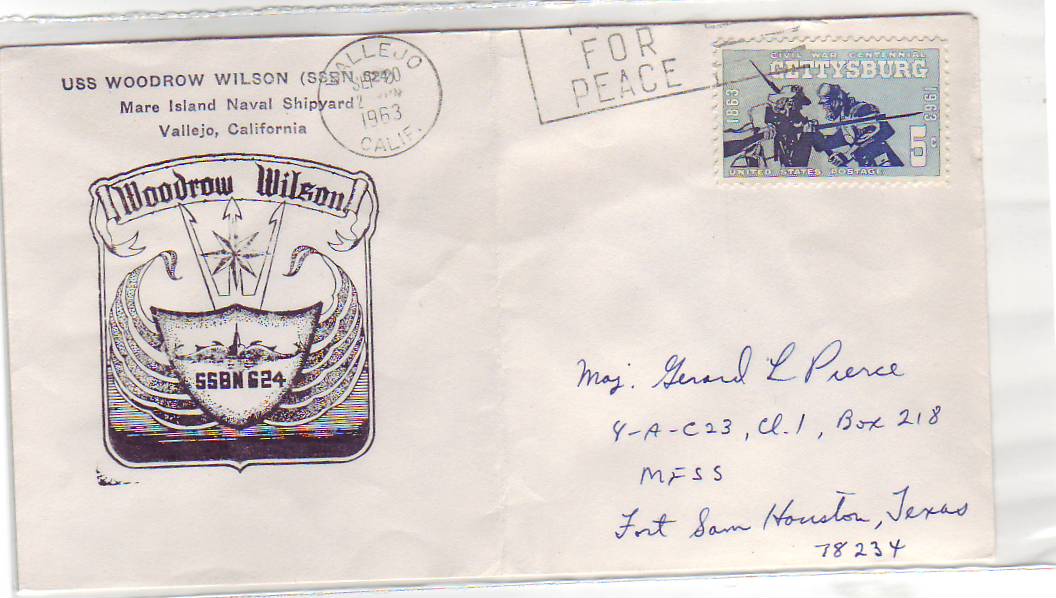 USS WOODROW WILSON (SSBN 624)
Mare Island Naval Shipyard
Vallejo, California
VALLEJO
SEP 20
2 PM
1963
CALIF.
FOR
PEACE
CIVIL WAR CENTENNIAL
GETTYSBURG
1863
1963
5c
UNITED STATES POSTAGE
Woodrow Wilson
SSBN 624
Maj. Gerard L Pierce
4-A-C23, Cl. 1, Box 218
MFSS
Fort Sam Houston, Texas
78234